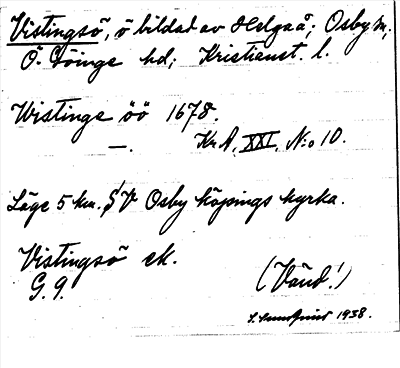 Vistingsö, ö bildad av Helgaå; Osby sn,
Ö. Göinge hd; Kristianst. l.
Wistinge öö 1678.
—. Kr.A. XXI. N:o 10.
Läge 5 km. SV Osby köpings kyrka.
Vistingsö ek.
G. 9.
(Vänd!)
1938.